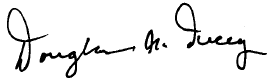 Douglas A. Ducey